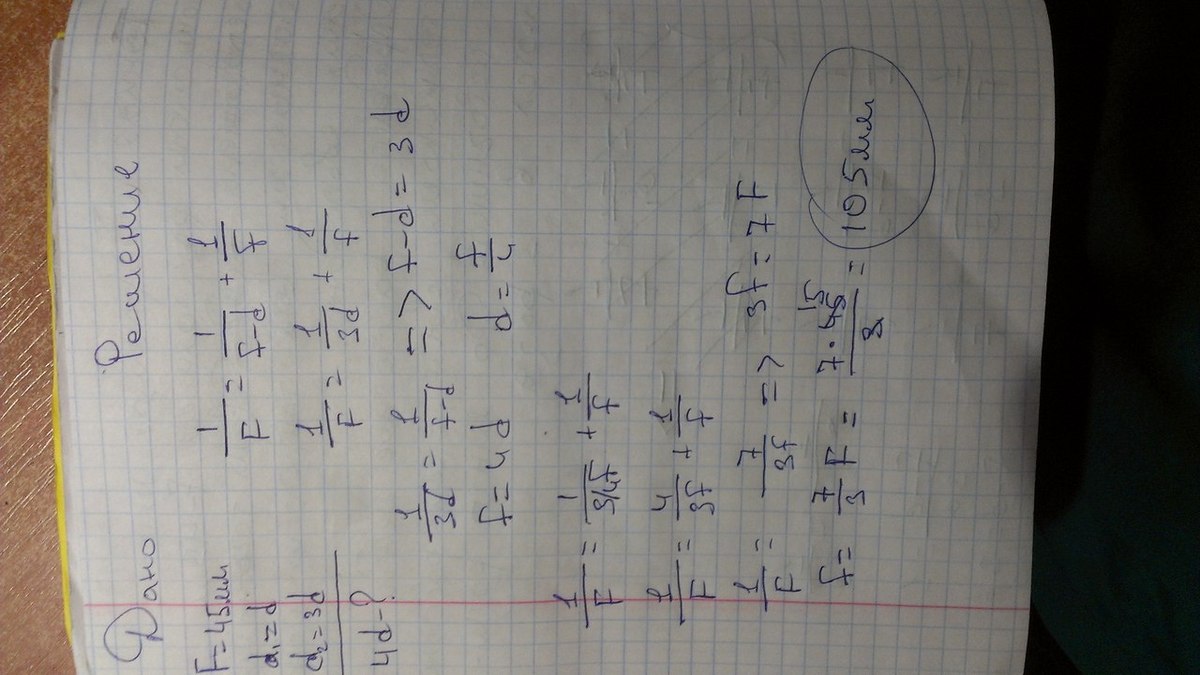 Дано
F=45мм
d₁=d
d₂=3d
4d-?
Решение
1/F = 1/(f-d) + 1/f
1/F = 1/3d + 1/f
1/3d = 1/(f-d) => f-d=3d
f=4d d=f/4
1/F = 1/(3/4f) + 1/f
1/F = 4/3f + 1/f
1/F = 7/3f => 3f=7F
f= 7/3 F = 7·45/3 = 105мм
15